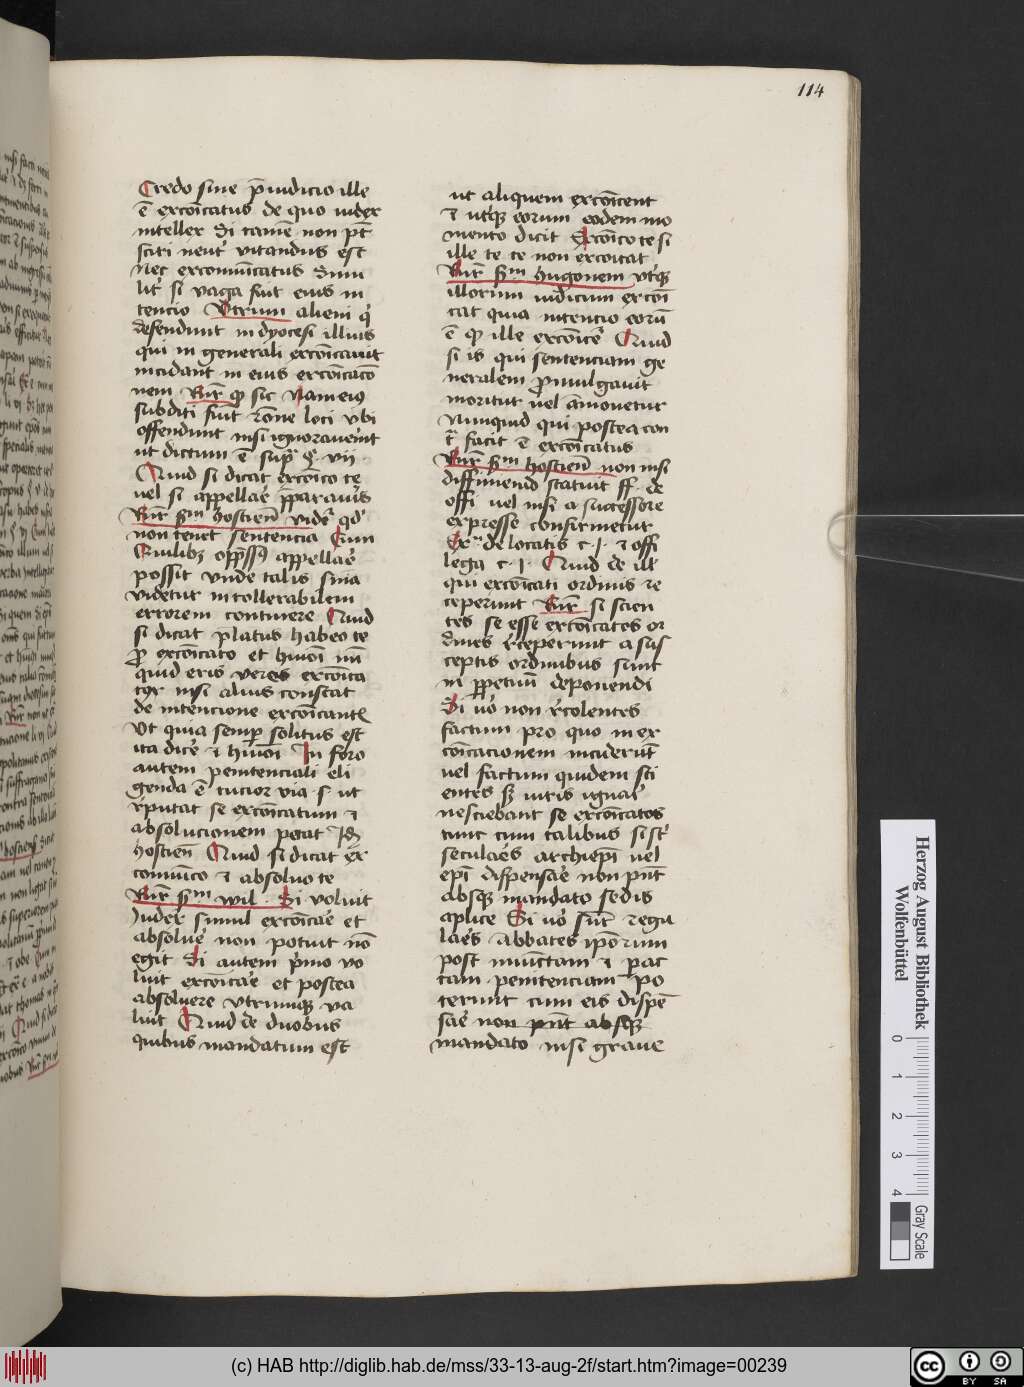 114
Credo sine p̄iudicio ille
ē excōicatus de quo iudex
intellex Si tamē non pt̄
sciri neut᷑ vitandus est
Nec excommūicatus Simi
lit᷑ si vaga fuit eius in
tencio Vtrum alieni q᷑
defendunt in dyocesi illius
qui in generali excōicauit
incidant in eius excōicacō
nem Rn̄r ꝙ sic Nam eiꝰ
subditi sūt rōne loci vbi
offendunt nisi ignorauerint
ut dictum ē sup᷑ q᷑ vij
Quid si dicat excōico te
uel si appellaūs p̄paraūs
Rn̄r ẜm hostien̄ videt᷑ qd᷑
non tenet sentencia Cum
Quilibꝫ opp̄ssꝰ appellare
possit vnde talis sn̄ia
videtur intollerabilem
errorem continere Quid
si dicat platus habeo te
ꝓ excōicato et huiōi nū
quid eris verꝰ excōica
tꝰ nisi alius constat
de intencione excōicantis
Vt quia semꝑ solitus est
ita dicē ⁊ huiōi In foro
autem penitenciali eli
genda ē tucior via s ut
r᷑putat se excōicatum ⁊
absolucionem petat Idē
hostien̄ Quid si dicat ex
comūico ⁊ absoluo te
Rn̄r ẜm wil · Si voluit
Iudex simul excōicāe et
absoluē non potuit nō
egit Si autem p᷑mo vo
luit excōicāe et postea
absoluere vtrumqꝫ va
luit Quid de duobus
quibus mandatum est
ut aliquem excōicent
⁊ utqꝫ eorum eodem mo
mento dicit Excōico te si
ille te te non excōicat
Rn̄r ẜm hugonem vt᷑qꝫ
illorum iudicium excōi
cat quia intentio eorū
ē ꝙ ille excōicē Quid
si is qui sentenciam ge
neralem ꝓmulgauit
moritur uel āmouetur
Nunquid qui postea con
t᷑ facit ē excōicatus
Rn̄r ẜm hostien̄ non nisi
diffiniendo statuit ff · de
offi uel nisi a successore
expresse confirmetur
Ex᷑ de locatis c · j · ⁊ offi
lega c · j · Quid de ill᷑
qui excōicati ordinis re
ceperunt Rn̄r si scien
tes se esse excōicatos or
dines r᷑ceperunt a sus
ceptis ordinibus sunt
in ꝑpetuū deponendi
Si uō non r᷑colentes
factum pro quo in ex
cōicacionem inciderūt
uel factum quidem sci
entes sꝫ iuris ignari
nesciebant se excōicatos
tunc cum talibus si st᷑
seculaēs archiepī uel
epī dispensāe non pn̄t
absqꝫ mandato sedis
aplice Si uō sūt regu
laēs abbates ip̄orum
post iniūctam ⁊ ꝑac
tam penitenciam po
terunt cum eis dispē
sāe non pn̄t absqꝫ
mandato nisi graue
Herzog August Bibliothek
Wolfenbüttel
0 1 2 3 4
Gray Scale
(c) HAB http://diglib.hab.de/mss/33-13-aug-2f/start.htm?image=00239
cc BY SA